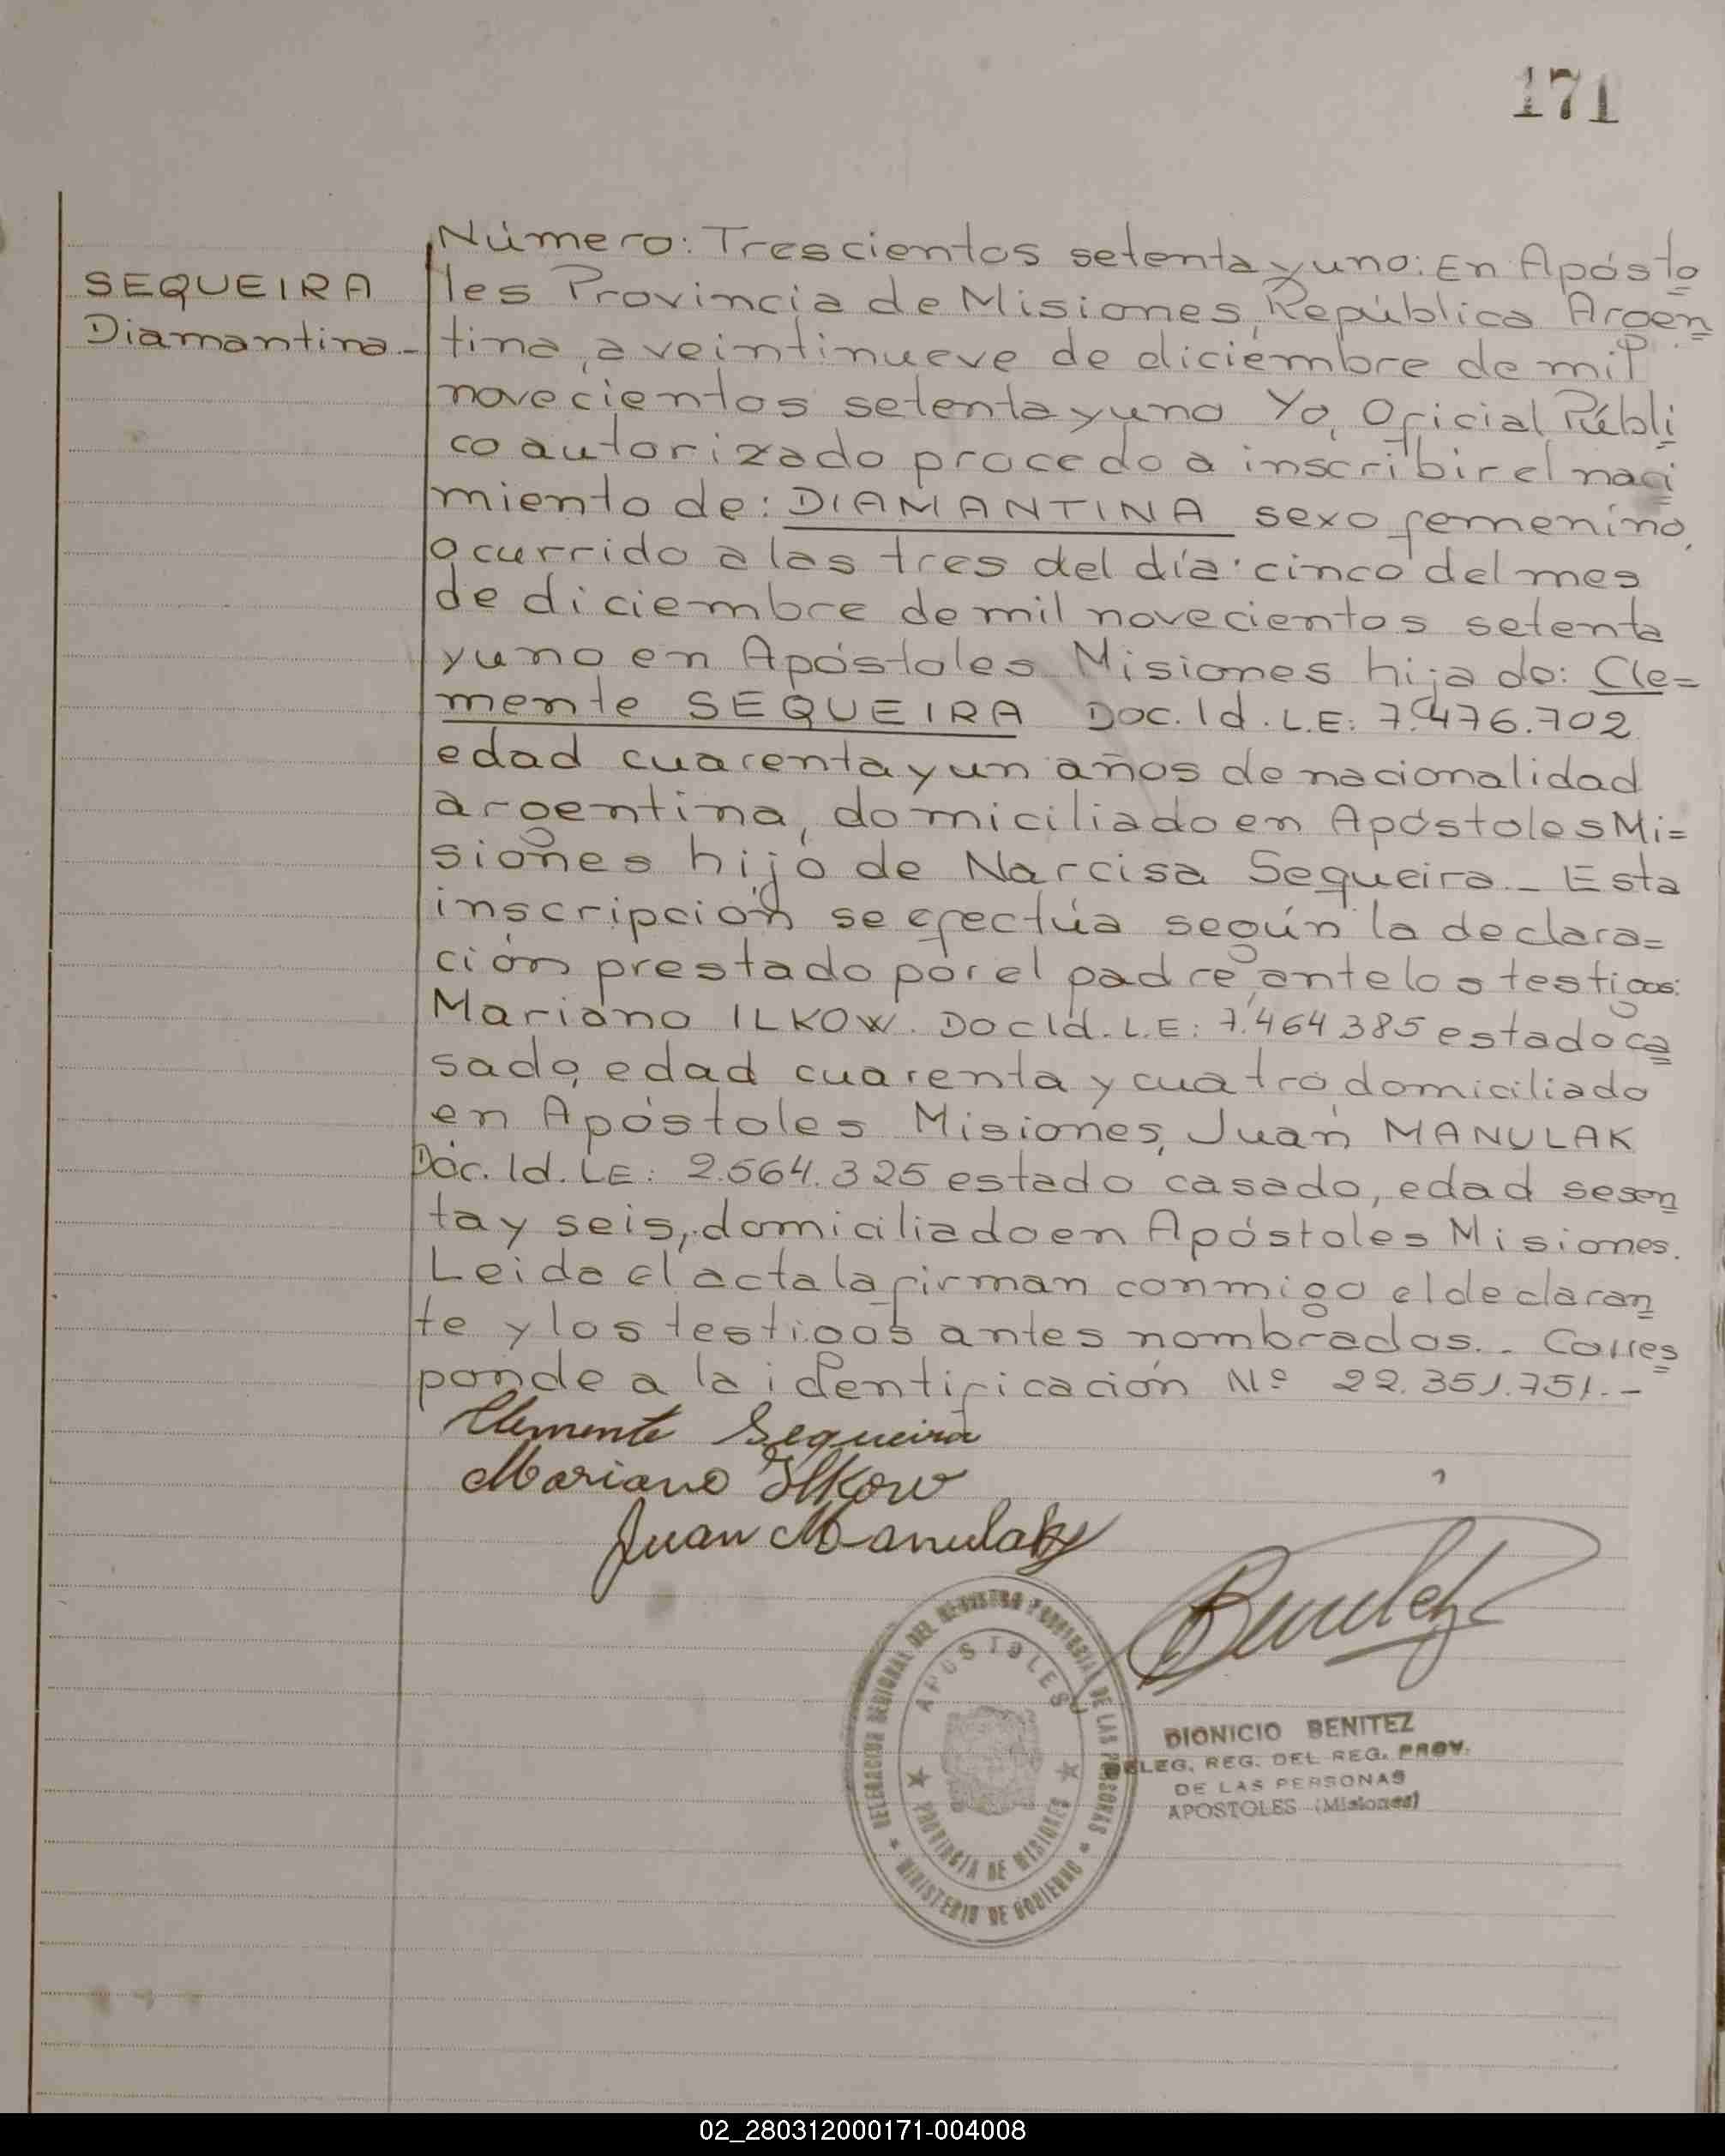 171
SEQUEIRA
Diamantina.-
Número: Trescientos setenta y uno: En Apósto
les Provincia de Misiones, República Argen
tina, a veintinueve de diciembre de mil
novecientos setenta y uno Yo, Oficial Públi
co autorizado procedo a inscribir el naci
miento de: DIAMANTINA sexo femenino,
ocurrido a las tres del día: cinco del mes
de diciembre de mil novecientos setenta
y uno en Apóstoles Misiones hija de: Cle=
mente SEQUEIRA Doc. Id. L.E: 7.476.702
edad cuarenta y un años de nacionalidad
argentina, domiciliado en Apóstoles Mi=
siones hijo de Narcisa Sequeira.- Esta
inscripción se efectúa según la declara=
ción prestado por el padre, ante los testigos:
Mariano ILKOW. Doc Id. L.E: 7.464385 estado ca
sado, edad cuarenta y cuatro domiciliado
en Apóstoles Misiones, Juan MANULAK
Doc. Id. LE: 2.564.325 estado casado, edad sesen
ta y seis, domiciliado en Apóstoles Misiones.
Leida el acta la firman conmigo el declaran
te y los testigos antes nombrados.- Corres
ponde a la identificación Nº 22.351.751.-
Clemente Sequeira
Mariano Ilkow
Juan Manulak
Benitez
DELEGACION REGIONAL DEL REGISTRO PROVINCIAL DE LAS PERSONAS
APOSTOLES
PROVINCIA DE MISIONES
MINISTERIO DE GOBIERNO
DIONICIO BENITEZ
DELEG. REG. DEL REG. PROV.
DE LAS PERSONAS
APOSTOLES (Misiones)
02_280312000171-004008